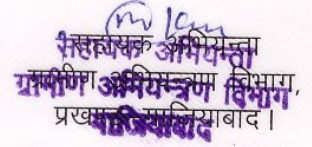 सहायक अभियन्ता
ग्रामीण अभियन्त्रण विभाग,
प्रखण्ड गाजियाबाद।
सहायक अभियन्ता
ग्रामीण अभियन्त्रण विभाग,
गाजियाबाद